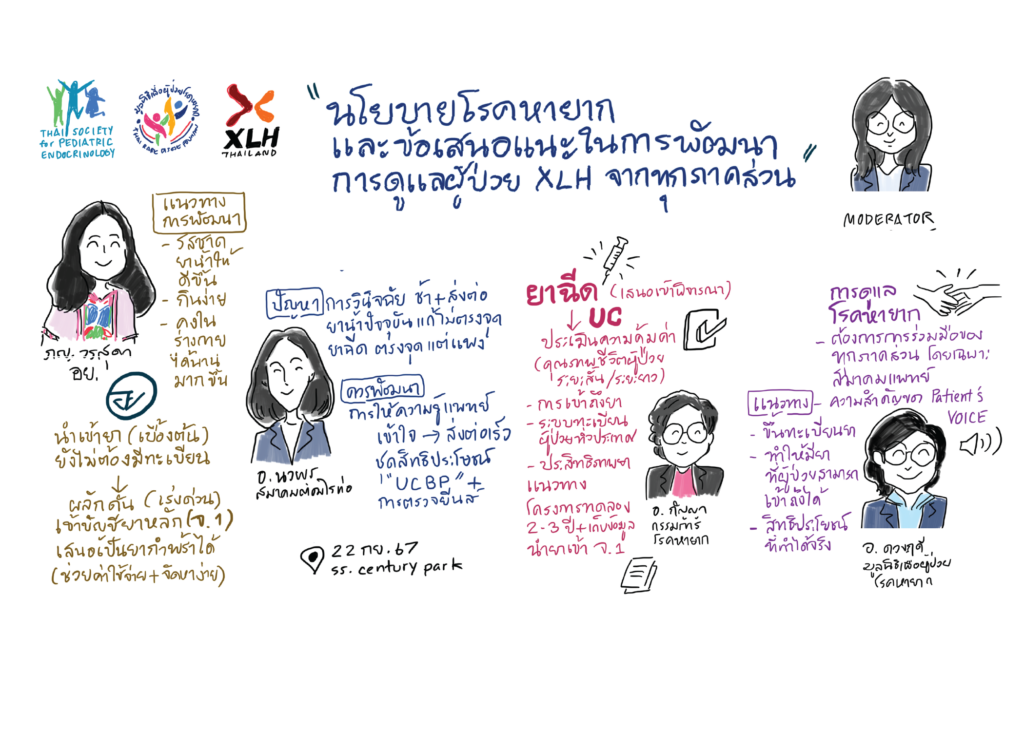 THAI SOCIETY
for PEDIATRIC
ENDOCRINOLOGY
XLH
THAILAND
"นโยบายโรคหายาก
และข้อเสนอแนะในการพัฒนา
การดูแลผู้ป่วย XLH จากทุกภาคส่วน"
MODERATOR
แนวทาง
การพัฒนา
- รสชาด
ยาน้ำให้
ดีขึ้น
- กินง่าย
- คงใน
ร่างกาย
ได้นาน
มากขึ้น
ภญ. วรสุดา
อย.
นำเข้ายา (เบื้องต้น)
ยังไม่ต้องมีทะเบียน
ผลักดัน (เร่งด่วน)
เข้าบัญชียาหลัก (จ.1)
เสนอเป็นยากำพร้าได้
(ช่วยค่าใช้จ่าย + จัดหาง่าย)
ปัญหา การวินิจฉัย ช้า + ส่งต่อ
ยาน้ำปัจจุบัน แก้ไม่ตรงจุด
ยาฉีด ตรงจุด แต่แพง
ควรพัฒนา
การให้ความรู้แพทย์
เข้าใจ → ส่งต่อเร็ว
ชุดสิทธิประโยชน์
"UCBP" +
การตรวจยีนส์
อ. นวพร
สมาคมต่อมไร้ท่อ
22 กย. 67
รร. century park
ยาฉีด (เสนอเข้าพิจารณา)
UC
ประเมินความคุ้มค่า
(คุณภาพชีวิตผู้ป่วย
ระยะสั้น/ระยะยาว)
- การเข้าถึงยา
- ระบบทะเบียน
ผู้ป่วยทั่วประเทศ
- ประสิทธิภาพยา
แนวทาง
โครงการทดลอง
2-3 ปี + เก็บข้อมูล
นำยาเข้า จ.1
อ. กัญญา
โรคหายาก
การดูแล
โรคหายาก
- ต้องการการร่วมมือของ
ทุกภาคส่วน โดยเฉพาะ
สมาคมแพทย์
- ความสำคัญของ Patient's
VOICE
แนวทาง
- ขึ้นทะเบียนยา
- ทำให้มียา
ที่ผู้ป่วยสามารถ
เข้าถึงได้
- สิทธิประโยชน์
ที่ทำได้จริง
อ. ดวงฤดี
มูลนิธิเพื่อผู้ป่วย
โรคหายาก